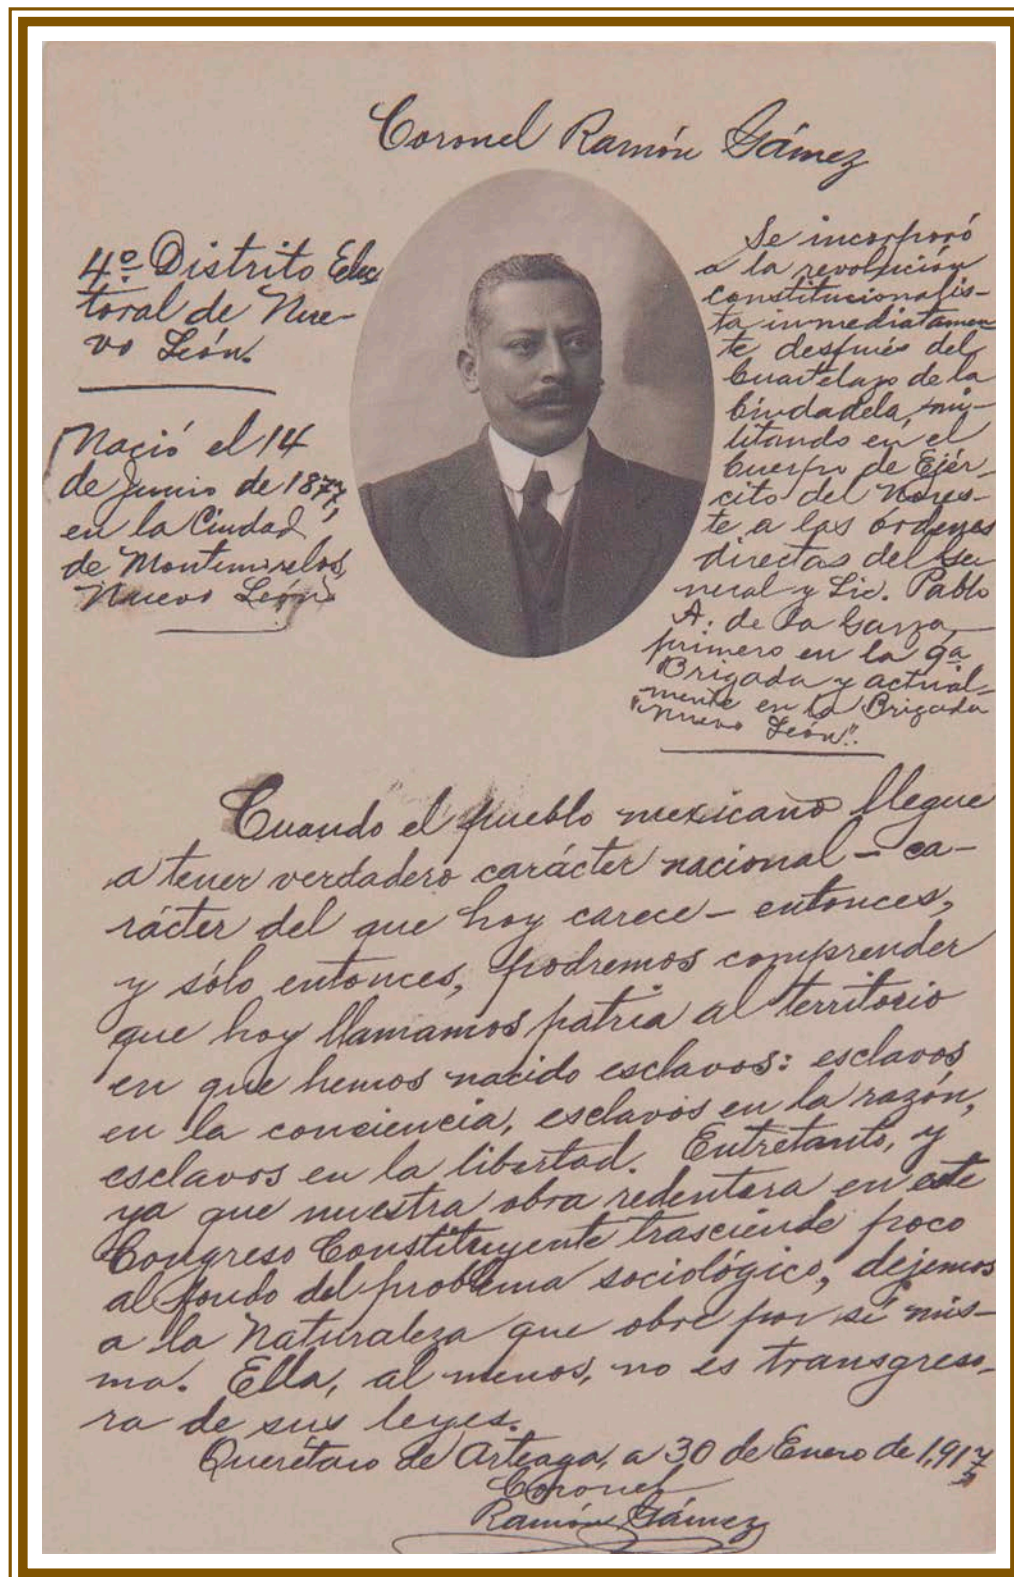 Coronel Ramón Gámez
4º Distrito Elec
toral de Nue-
vo León.
Nació el 14
de Junio de 1877,
en la Ciudad
de Montemorelos,
Nuevo León
Se incorporó
a la revolución
constitucionalis-
ta inmediatamen
te después del
Cuartelazo de la
Ciudadela, mi-
litando en el
Cuerpo de Ejér-
cito del Nores-
te a las órdenes
directas del Ge
neral y Lic. Pablo
A. de la Garza,
primero en la 9ª
Brigada y actual-
mente en la Brigada
"Nuevo León".
Cuando el pueblo mexicano llegue
a tener verdadero carácter nacional – ca-
rácter del que hoy carece – entonces,
y sólo entonces, podremos comprender
que hoy llamamos patria al territorio
en que hemos nacido esclavos: esclavos
en la conciencia, esclavos en la razón,
esclavos en la libertad. Entretanto, y
ya que nuestra obra redentora en este
Congreso Constituyente trasciende poco
al fondo del problema sociológico, dejemos
a la Naturaleza que obre por sí mis-
ma. Ella, al menos, no es transgreso-
ra de sus leyes.
Querétaro de Arteaga, a 30 de Enero de 1,917
Coronel
Ramón Gámez